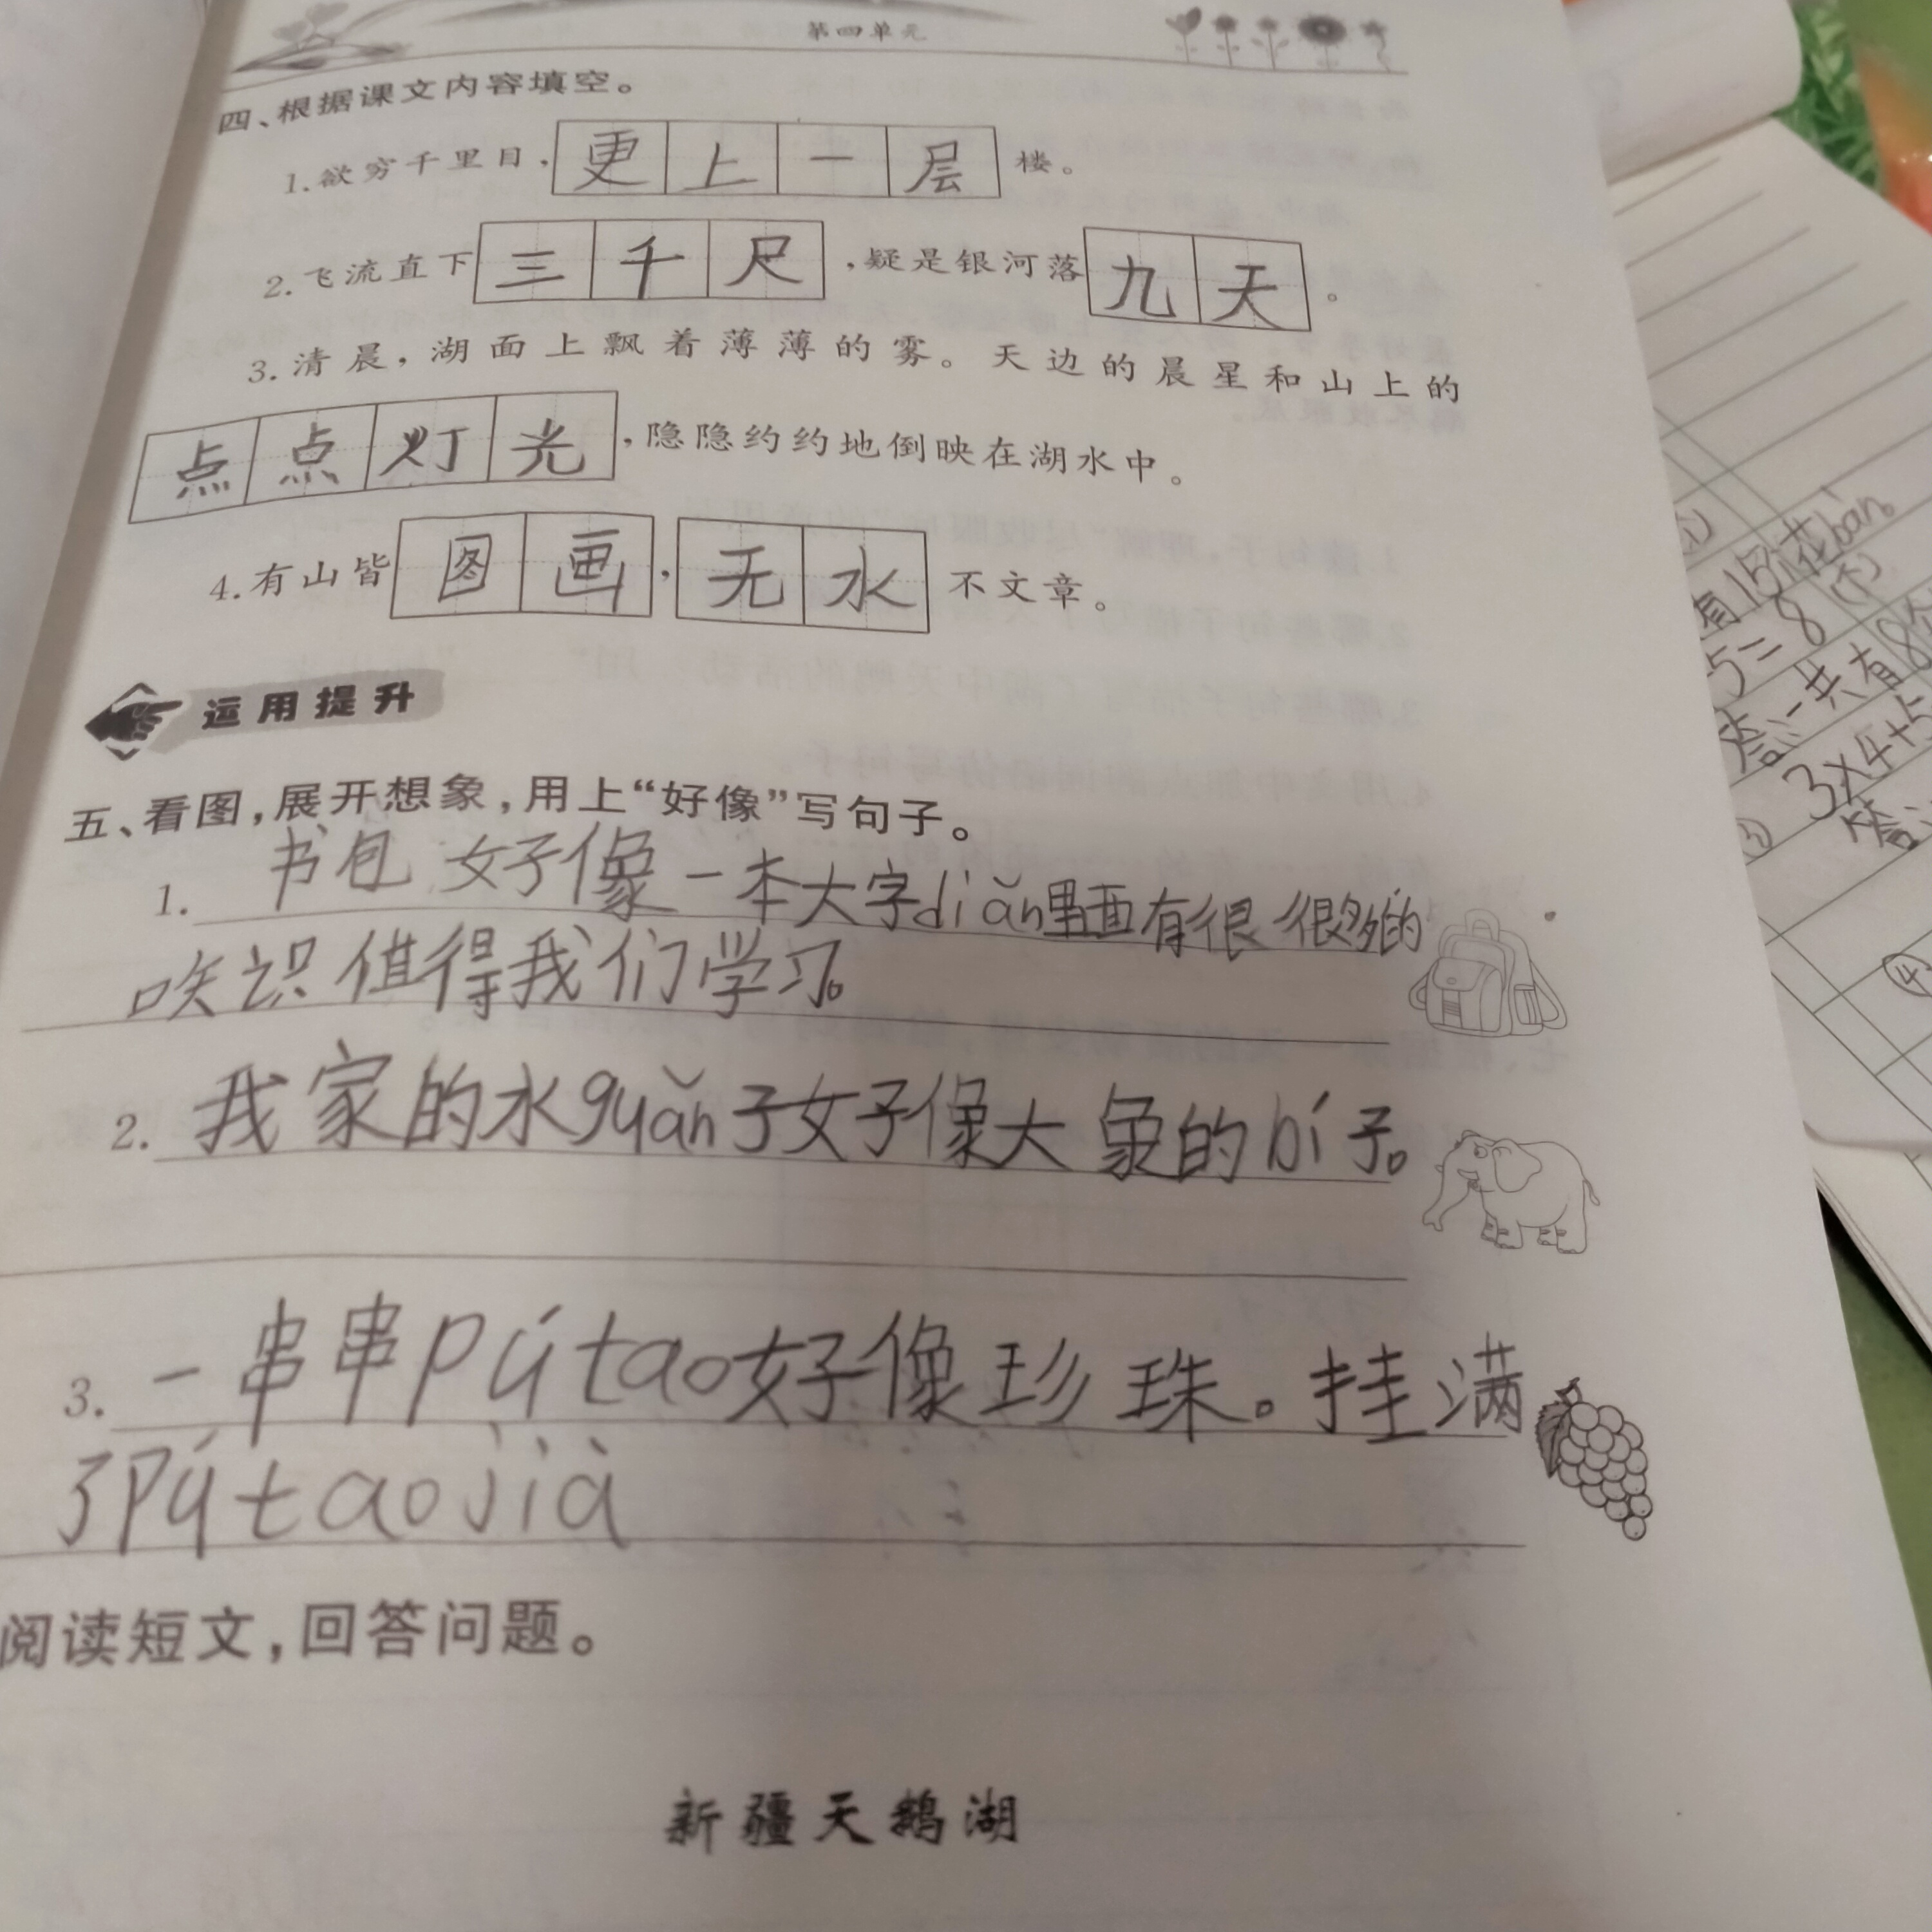 第四单元
四、根据课文内容填空。
1.欲穷千里目,更上一层楼。
2.飞流直下三千尺,疑是银河落九天。
3.清晨,湖面上飘着薄薄的雾。天边的晨星和山上的
点点灯光,隐隐约约地倒映在湖水中。
4.有山皆图画,无水不文章。
运用提升
五、看图,展开想象,用上“好像”写句子。
1.书包好像一本大字diǎn里面有很很多的
识值得我们学习。
2.我家的水guǎn子好像大象的bí子。
3.一串串pútao好像珍珠。挂满
了Pútaojià
阅读短文,回答问题。
新疆天鹅湖
有15花bàn
5=8(个)
答:一共有8个
3×4+5
答:
④